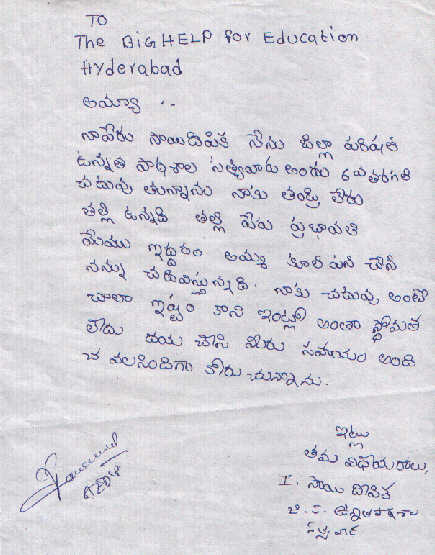 TO
The BIG HELP for Education
Hyderabad
అయ్యా ..
నాపేరు సాయిదీపిక నేను జిల్లా పరిషత్
ఉన్నత పాఠశాల సత్యవారు నందు 6వ తరగతి
చదువు తున్నాను నాకు తండ్రి లేరు
తల్లి ఉన్నది తల్లి పేరు ప్రభావతి
మేము ఇద్దరం అమ్మ కూలి పని చేసి
నన్ను చదివిస్తున్నది. నాకు చదువు అంటే
చాలా ఇష్టం కాని ఇంట్లో అంతా స్థోమత
లేదు దయ చేసి మీరు సహాయం అంది
చ వలసిందిగా కోరు చున్నాను.
ఇట్లు
తమ విధేయరాలు,
I. సాయి దీపిక
జి. ప. ఉన్నత పాఠశాల